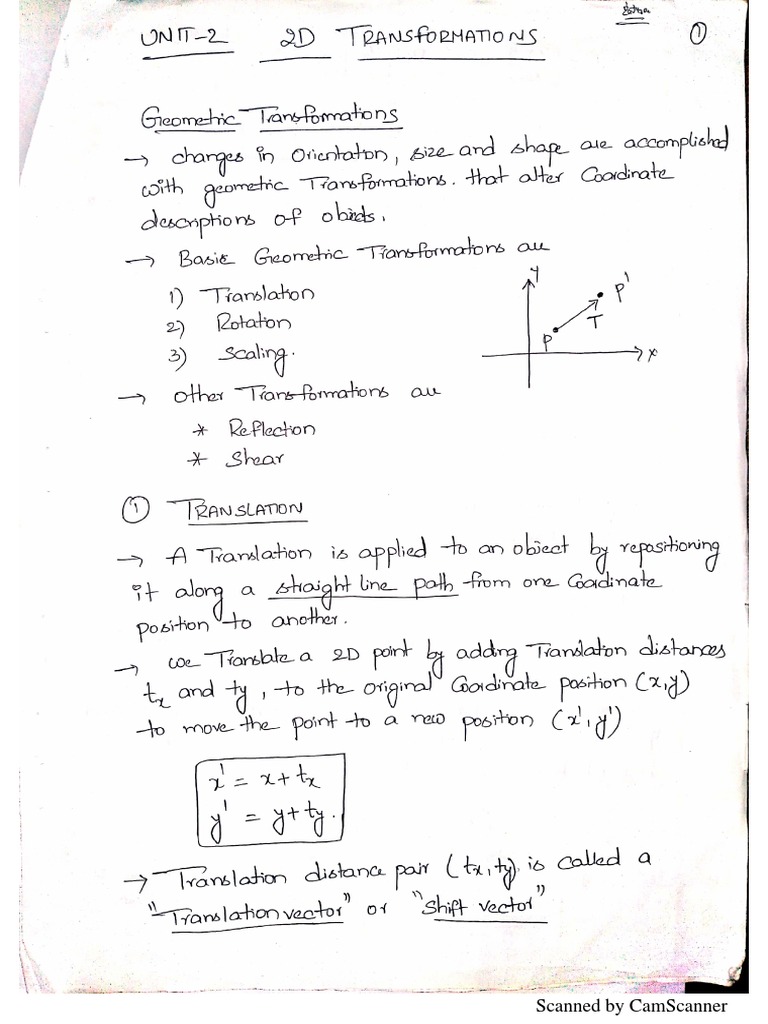 UNIT-2 2D TRANSFORMATIONS 1
Geometric Transformations
→ changes in Orientation, size and shape are accomplished
with geometric Transformations. that alter Coordinate
descriptions of objects.
→ Basic Geometric Transformations are
1) Translation
2) Rotation
3) Scaling.
y
P'
T
P
x
→ other Transformations are
* Reflection
* Shear
① TRANSLATION
→ A Translation is applied to an object by repositioning
it along a straight line path from one Coordinate
position to another.
→ we Translate a 2D point by adding Translation distances
tx and ty, to the original Coordinate position (x,y)
to move the point to a new position (x',y')
x' = x+tx
y' = y+ty.
→ Translation distance pair (tx,ty) is called a
"Translation vector" or "Shift vector"
Scanned by CamScanner